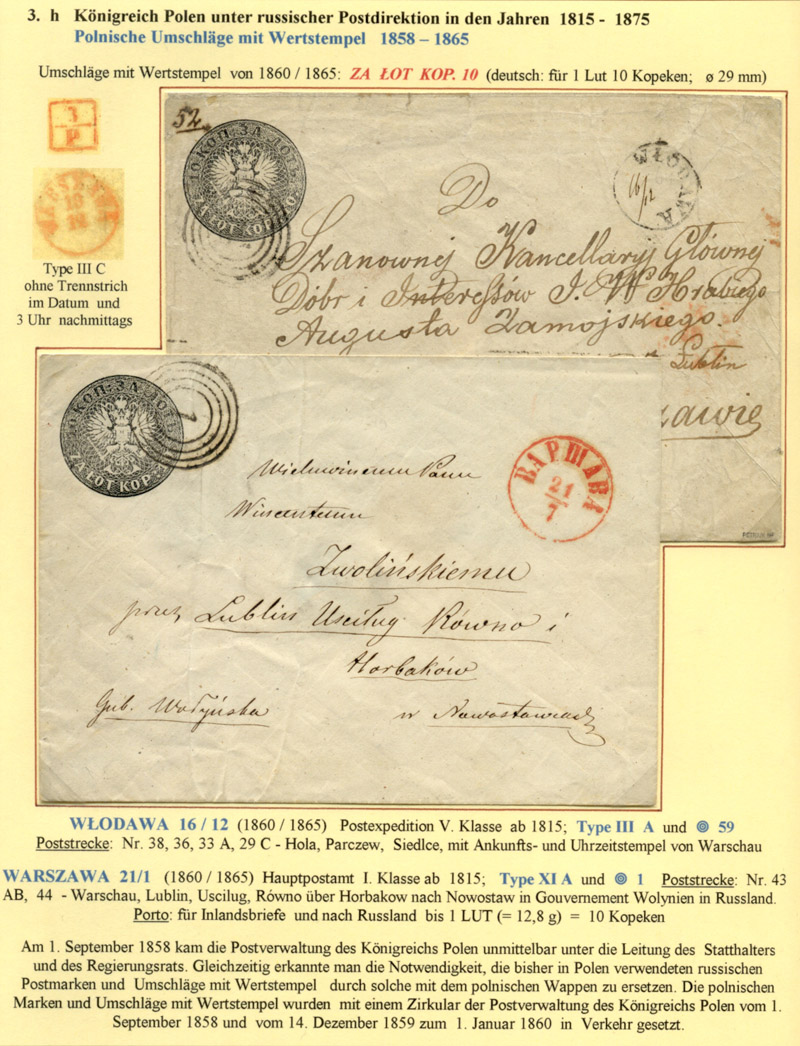 3. h Königreich Polen unter russischer Postdirektion in den Jahren 1815 - 1875
Polnische Umschläge mit Wertstempel 1858 – 1865
Umschläge mit Wertstempel von 1860 / 1865: ZA ŁOT KOP. 10 (deutsch: für 1 Lut 10 Kopeken; ø 29 mm)
3
P
Type III C
ohne Trennstrich
im Datum und
3 Uhr nachmittags
52
10 КОП. ЗА ЛОТЪ
ZA ŁOT KOP. 10
WŁODAWA
16/12
Do
Szanownej Kancellaryj Głównej
Dóbr i Interessów J. W Hrabiego
Augusta Zamojskiego.
Lublin
10 КОП. ЗА ЛОТЪ
ZA ŁOT KOP.
1
ВАРШАВА
21
7
Wielmożnemu Panu
Wincentemu
Zwolińskiemu
przez Lublin Uściług Równo i
Horbaków
Gub. Wołyńska
w
WŁODAWA 16 / 12 (1860 / 1865) Postexpedition V. Klasse ab 1815; Type III A und 59
Poststrecke: Nr. 38, 36, 33 A, 29 C - Hola, Parczew, Siedlce, mit Ankunfts- und Uhrzeitstempel von Warschau
WARSZAWA 21/1 (1860 / 1865) Hauptpostamt I. Klasse ab 1815; Type XI A und 1 Poststrecke: Nr. 43
AB, 44 - Warschau, Lublin, Uscilug, Równo über Horbakow nach Nowostaw in Gouvernement Wolynien in Russland.
Porto: für Inlandsbriefe und nach Russland bis 1 LUT (= 12,8 g) = 10 Kopeken
Am 1. September 1858 kam die Postverwaltung des Königreichs Polen unmittelbar unter die Leitung des Statthalters
und des Regierungsrats. Gleichzeitig erkannte man die Notwendigkeit, die bisher in Polen verwendeten russischen
Postmarken und Umschläge mit Wertstempel durch solche mit dem polnischen Wappen zu ersetzen. Die polnischen
Marken und Umschläge mit Wertstempel wurden mit einem Zirkular der Postverwaltung des Königreichs Polen vom 1.
September 1858 und vom 14. Dezember 1859 zum 1. Januar 1860 in Verkehr gesetzt.